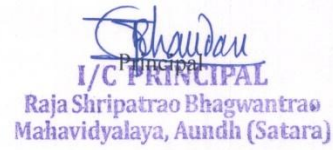 Principal
I/C PRINCIPAL
Raja Shripatrao Bhagwantrao
Mahavidyalaya, Aundh (Satara)